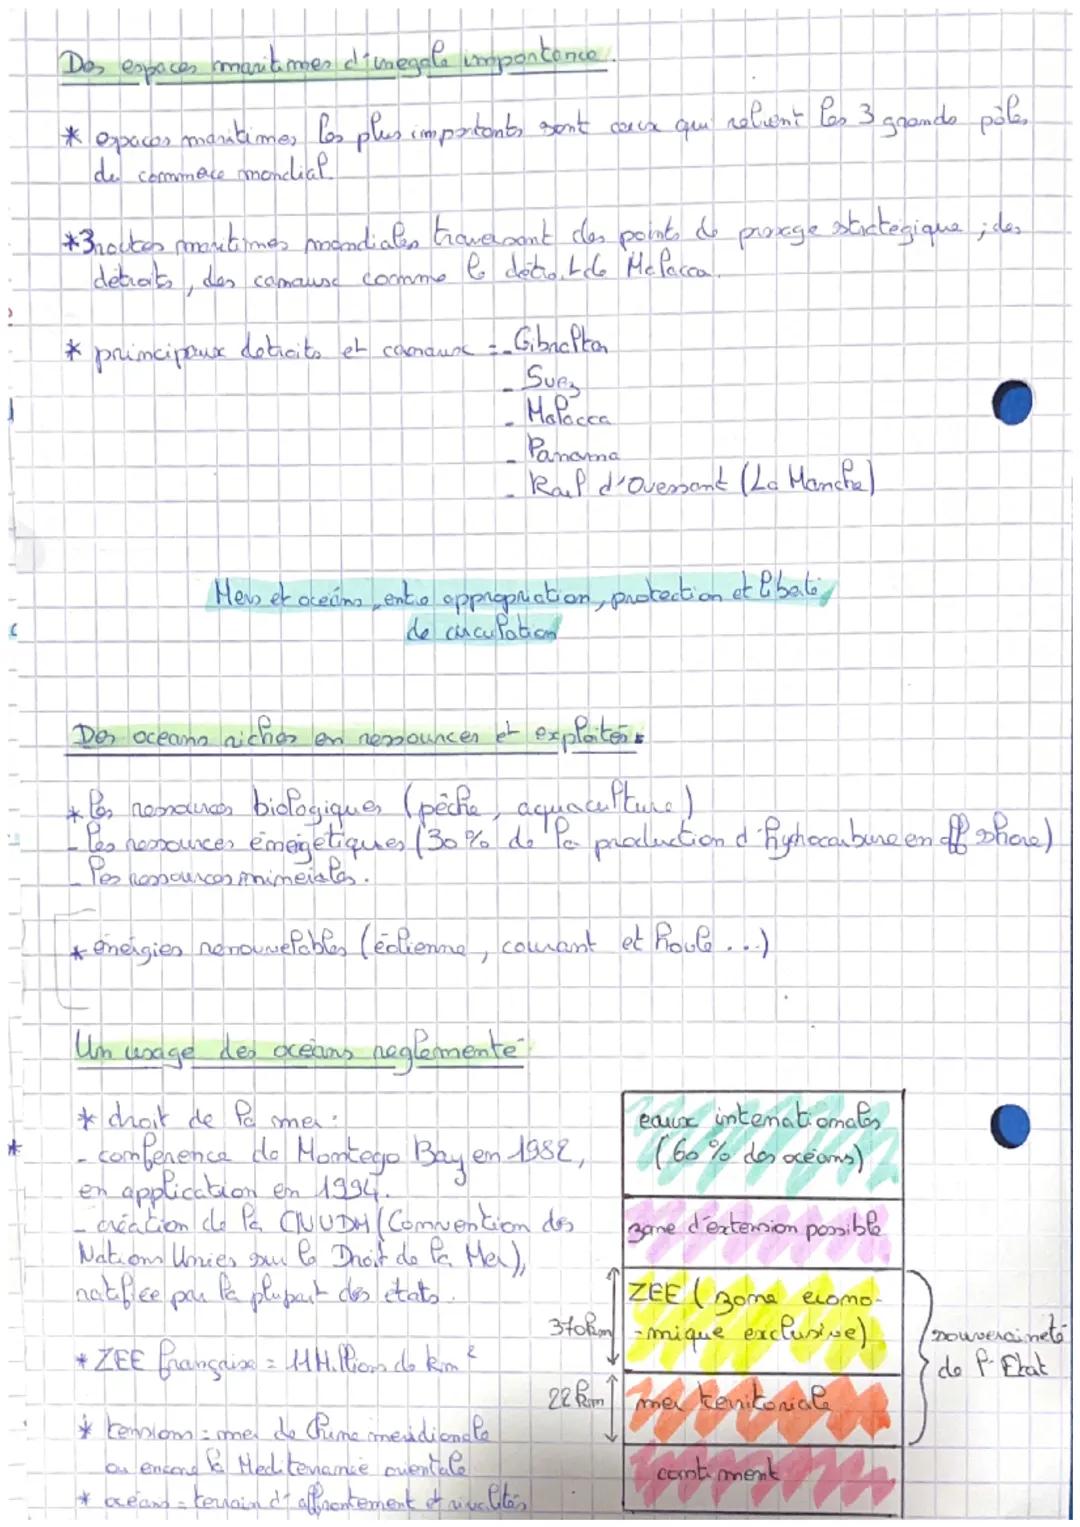 Des espaces maritimes d'inegale importance.
* espaces maritimes les plus importants sont ceux qui relient les 3 grands pôles
du commerce mondial.
*3 routes maritimes mondiales traversant des points de passage stratégique ; des
détroits, des canaux comme le détroit de Malacca.
* principaux detroits et canaux = - Gibraltar
- Suez
- Malacca
- Panama
- Rail d'Ouessant (La Manche)
Mers et oceans, entre appropriation, protection et liberté
de circulation
Des oceans riches en ressources et exploités.
* les ressources biologiques (pêche, aquaculture)
- les ressources énergétiques (30% de la production d'hyhocarbure en off shore)
- les ressources minerales.
* énergies renouvelables (éolienne, courant et houle ...)
Un usage des oceans reglementé
* droit de la mer :
- conférence de Montego Bay en 1982,
en application en 1994.
- création de la CNUDM (Convention des
Nations Unies sur le Droit de la Mer),
ratifiée par la plupart des états.
* ZEE française = 11 Millions de km²
* tensions = mer de Chine meridionale
ou encore la Mediterranée orientale
* océans = terrain d'affrontement et rivalités
eaux internationales
(60 % des océans)
zone d'extension possible
370km
ZEE (zone econo-
-mique exclusive)
souveraineté
de l'Etat
22 km
mer territoriale
continent